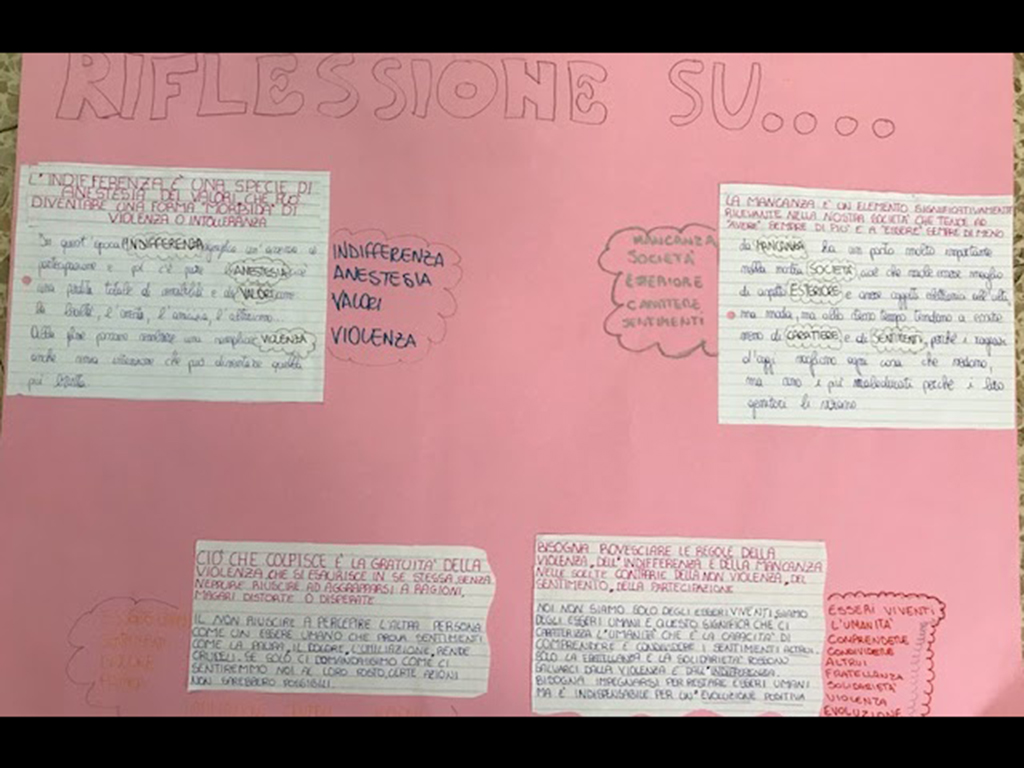 RIFLESSIONE SU....
L'INDIFFERENZA È UNA SPECIE DI
ANESTESIA DEI VALORI, CHE PUÒ
DIVENTARE UNA FORMA "MORBIDA" DI
VIOLENZA O INTOLLERANZA
In quest'epoca l'INDIFFERENZA
partecipazione e poi c'è pure l'ANESTESIA
una perdita totale di sensibilità e di VALORI come
la lealtà, l'onestà, l'amicizia, l'altruismo.
VIOLENZA
anche senza intenzione che può alimentare quella
più
INDIFFERENZA
ANESTESIA
VALORI
VIOLENZA
MANCANZA
SOCIETA'
ESTERIORE
CARATTERE
SENTIMENTI
LA MANCANZA E' UN ELEMENTO SIGNIFICATIVAMENTE
RILEVANTE NELLA NOSTRA SOCIETA' CHE TENDE AD
"AVERE" SEMPRE DI PIU' E A "ESSERE" SEMPRE DI MENO
La MANCANZA ha un posto molto importante
nella nostra SOCIETÀ, cioè che vuole avere meglio
di aspetto ESTERIORE e avere oggetti
ma moda, ma allo stesso tempo tendono a essere
meno di CARATTERE e di SENTIMENTI, perché i ragazzi
d'oggi vogliono ogni cosa che vedono,
ma sono i più maleducati perché i loro
genitori li viziano
CIO' CHE COLPISCE È LA GRATUITA' DELLA
VIOLENZA, CHE SI ESAURISCE IN SE STESSA, SENZA
NEPPURE RIUSCIRE AD AGGRAPPARSI A RAGIONI,
MAGARI DISTORTE O DISPERATE
IL NON RIUSCIRE A PERCEPIRE L'ALTRA PERSONA
COME UN ESSERE UMANO CHE PROVA SENTIMENTI
COME LA PAURA, IL DOLORE, L'UMILIAZIONE, RENDE
CRUDELI. SE SOLO CI DOMANDASSIMO COME CI
SENTIREMMO NOI AL LORO POSTO, CERTE AZIONI
NON SAREBBERO POSSIBILI.
BISOGNA ROVESCIARE LE REGOLE DELLA
VIOLENZA, DELL'INDIFFERENZA E DELLA MANCANZA
NELLE SCELTE CONTRARIE DELLA NON VIOLENZA, DEL
SENTIMENTO, DELLA PARTECIPAZIONE
NOI NON SIAMO SOLO DEGLI ESSERI VIVENTI SIAMO
DEGLI ESSERI UMANI E QUESTO SIGNIFICA CHE CI
CARATTERIZZA L'UMANITÀ CHE È LA CAPACITA' DI
COMPRENDERE E CONDIVIDERE I SENTIMENTI ALTRUI.
SOLO LA FRATELLANZA E LA SOLIDARIETA' POSSONO
SALVARCI DALLA VIOLENZA E DALL'INDIFFERENZA.
BISOGNA IMPEGNARSI PER RESTARE ESSERI UMANI
MA È INDISPENSABILE PER UN'EVOLUZIONE POSITIVA
ESSERI VIVENTI
L'UMANITA'
COMPRENDERE
CONDIVIDERE
ALTRUI
FRATELLANZA
SOLIDARIETA'
VIOLENZA
EVOLUZIONE